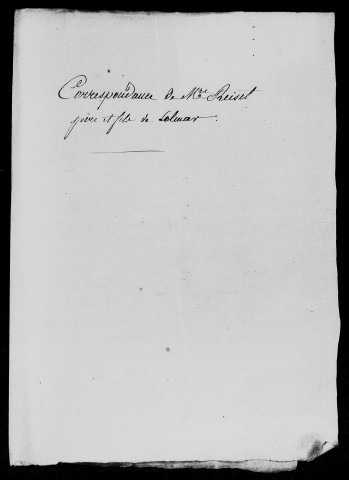 Correspondance de Mrs Reiset
père et fils de Colmar.